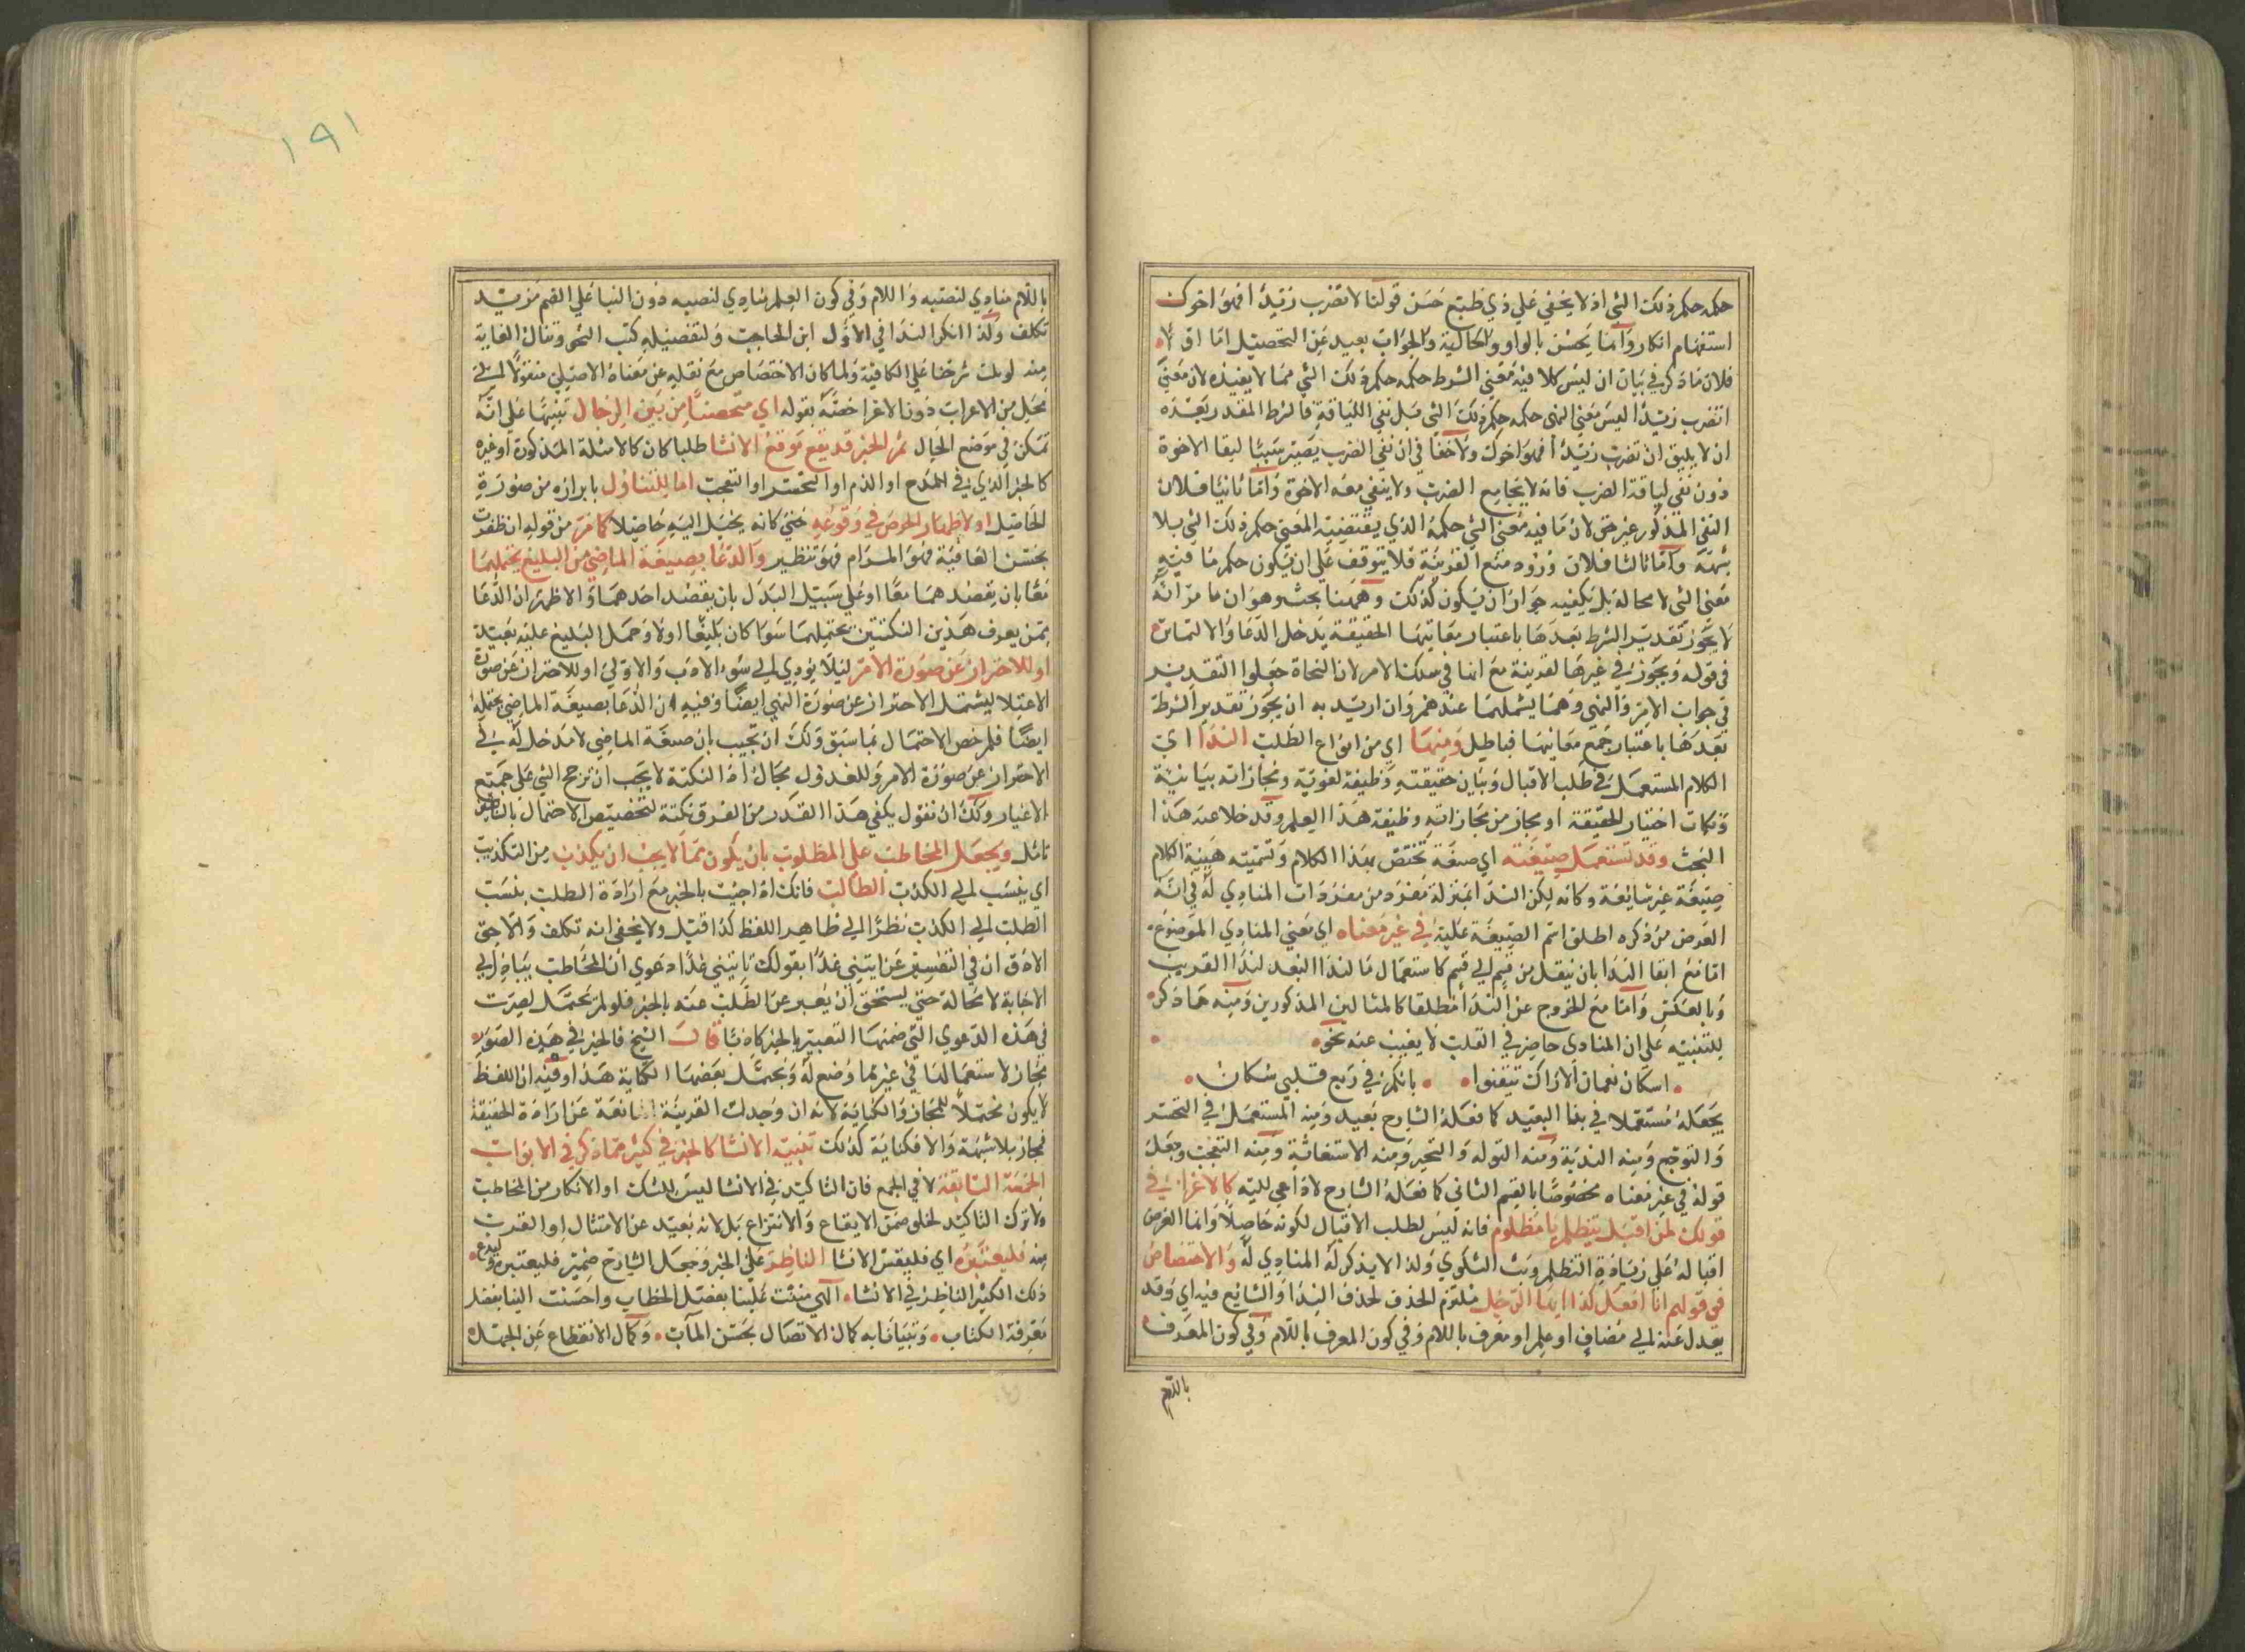 حكمه حكم ذلك الشي اذ لا يخفي علي ذي طبع حسن قولنا لا تضرب زيدا فهو اخوك
استفهام انكار واما يحسن بالواو والحالية والجواب بعيد عن التحصيل اما اولا
فلان ما ذكر في بيان ان ليس كلا فيه معني الشرط حكمه حكم ذلك الشي مما لا يفيده لان معني
اتضرب زيدا ليس معني النهي حكمه حكم ذلك الشي قبل نفي اللياقة فالشرط المقدر بعده
ان لا يليق ان تضرب زيدا فهو اخوك ولا خفا في ان نفي الضرب يصير سببا لبقا الاخوة
دون نفي لياقة الضرب فانه لا يجامع الضرب ولا ينفي معه الاخوة واما ثانيا فلان
النفي المذكور غير حق لان ما فيه معني الشي حكمه الذي يقتضيه المعني حكم ذلك الشي بلا
شبهة واما ثالثا فلان وروده منع القرينة فلا يتوقف علي ان يكون حكم ما فيه
معني الشي لا محالة بل يكفيه جواز ان يكون كذلك وههنا بحث وهو ان ما مر انه
لا يجوز تقدير الشرط بعدها باعتبار معانيها الحقيقة يدخل الدعا والالتماس
في قوله ويجوز في غيرها لقرينة مع انما في سلك الامر لان النحاة جعلوا التقدير
في جواب الامر والنهي وهما يشملهما عندهم وان اريد به ان يجوز تقدير الشرط
بعدها باعتبار جميع معانيها فباطل ومنها اي من انواع الطلب الندا اي
الكلام المستعمل في طلب الاقبال وبيان حقيقته وظيفة لغوية ومجازاته بيانية
ونكات اختيار الحقيقة او مجاز من مجازاته وظيفة هذا العلم وقد خلا عنه هذا
البحث وقد تستعمل صيغته اي صيغة تختص بهذا الكلام وتسميته هيية الكلام
صيغة غير شائعة وكانه لكن الندا بمنزلة مفرد من مفردات المنادي له في انه
الغرض من ذكره اطلق اسم الصيغة عليه في غير معناه اي معني المنادي الموضوع
اما مع ابقا الندا بان ينقل من قسم الي قسم كاستعمال ما لندا البعد لندا القريب
وبالعكس واما مع الخروج عن الندا مطلقا كالمثالين المذكورين ومنه ما ذكره
للتنبيه علي ان المنادي حاضر في القلب لا يغيب عنه نحو
اسكان نعمان الاراك تيقنوا بانكم في ربع قلبي سكان
يجعله مستعملا في بفا البعيد كما فعله الشارح بعيد ومنه المستعمل في التحسر
والتوجع ومنه الندبة ومنه التوله والتحير ومنه الاستغاثة ومنه التعجب وجعل
قوله في غير معناه مخصوصا بالقسم الثاني كما فعله الشارح لا داعي اليه كالاغرا في
قولك لمن اقبل يتظلم يا مظلوم فانه ليس لطلب الاقبال لكونه حاصلا وانما الغرض
اقباله علي زيادة التظلم وبث الشكوي ولذا لا يذكر له المنادي له والاختصاص
في قولهم انا افعل كذا ايها الرجل ملتزم الحذف لحذف الندا والشايع فيه اي وقد
يعدل عنه الي مضاف او علم او معرف باللام وفي كون المعرف باللام وفي كون المعرف
باللام
١٩١
باللام منادي لنصبه واللام وفي كون العلم منادي لنصبه دون البنا علي الضم مزيد
تكلف ولذا انكر الندا في الاول ابن الحاجب ولتفصيله كتب النحو وتنال الغاية
منه لو بلت شرحنا علي الكافية ولما كان الاختصاص مع نقله عن معناه الاصلي منقولا الي
محل من الاعراب دون الاغرا خصه بقوله اي متخصصا من بين الرجال تنبيها علي انه
تمكن في موضع الحال ثم الخبر قد يقع موقع الانشا طلبا كان كالامثلة المذكورة او غيره
كالخبر الذي في المدح او الذم او التحسر او التعجب اما للتفاول بابرازه من صورة
الحاصل او لاظهار الحرص في وقوعه حتي كانه يخيل اليه حاصلا كما مر من قوله ان ظفرت
بحسن العاقبة فهو المرام فهو تنظير والدعا بصيغة الماضي من البليغ يحتملهما
معا بان يقصدهما معا او علي سبيل البدل بان يقصد احدهما والاظهر ان الدعا
ممن يعرف هذين النكتتين يحتملهما سوا كان بليغا او لا وحمل البليغ عليه بعيد
او للاحتراز عن صورة الامر ليلا يودي الي سوء الادب والاولي او للاحتراز عن صورة
الاعتلا ليشتمل الاحتراز عن صورة النهي ايضا وفيه ان الدعا بصيغة الماضي يحتمله
ايضا فلم خص الاحتمال بما سبق ولك ان تجيب بان صيغة الماضي لا مدخل له في
الاحتراز عن صورة الامر وللعدول مجال اذ النكتة لا يجب ان ترجح الشي علي جميع
الاغيار ولك ان تقول يكفي هذا القدر من الفرق نكتة لتخصيص الاحتمال بالسابق
تامل ويجعل المخاطب علي المطلوب بان يكون مما لا يجب ان يكذب من التكذيب
اي ينسب الي الكذب الطالب فانك اذا اجيت بالخبر مع ارادة الطلب ينسب
الطلب الي الكذب نظرا الي ظاهر اللفظ كذا قيل ولا يخفي انه تكلف والاحق
الادق ان في التفسير عن ايتني غدا بقولك تاتيني غدا دعوي ان المخاطب يبادر الي
الاجابة لا محالة حتي يستحق ان يعبر عن الطلب عنه بالخبر فلو لم يحمل لصرت
في هذه الدعوي التي ضمنها التعبير بالخبر كاذبا قال الشيخ فالخبر في هذه الصور
مجاز لاستعمالها في غير ما وضع له ويحتمل بعضها الكناية هذا وفيه ان اللفظ
لا يكون محتملا للمجاز والكناية لانه ان وجدت القرينة المانعة عن ارادة الحقيقة
فمجاز بلا شبهة والا فكناية كذلك تنبيه الانشا كالخبر في كثير مما ذكر في الابواب
الخمسة السابقة لا في الجمع فان التاكيد في الانشا ليس للشك او الانكار من المخاطب
ولا ترك التاكيد لخلو ضمن الايقاع والانتزاع بل لانه بعيد عن الامتثال او القرب
منه فليعتبره اي فليقس الانشا الناظر علي الخبر وجعل الشارح ضمير فليعتبره ليدع
ذلك الكثير الناظر في الانشا الهي مننت علينا بفضل الخطاب واحسنت الينا بفضل
معرفة الكتاب وتبيانا به كمال الاتصال بحسن المآب وكمال الانقطاع عن الجهل